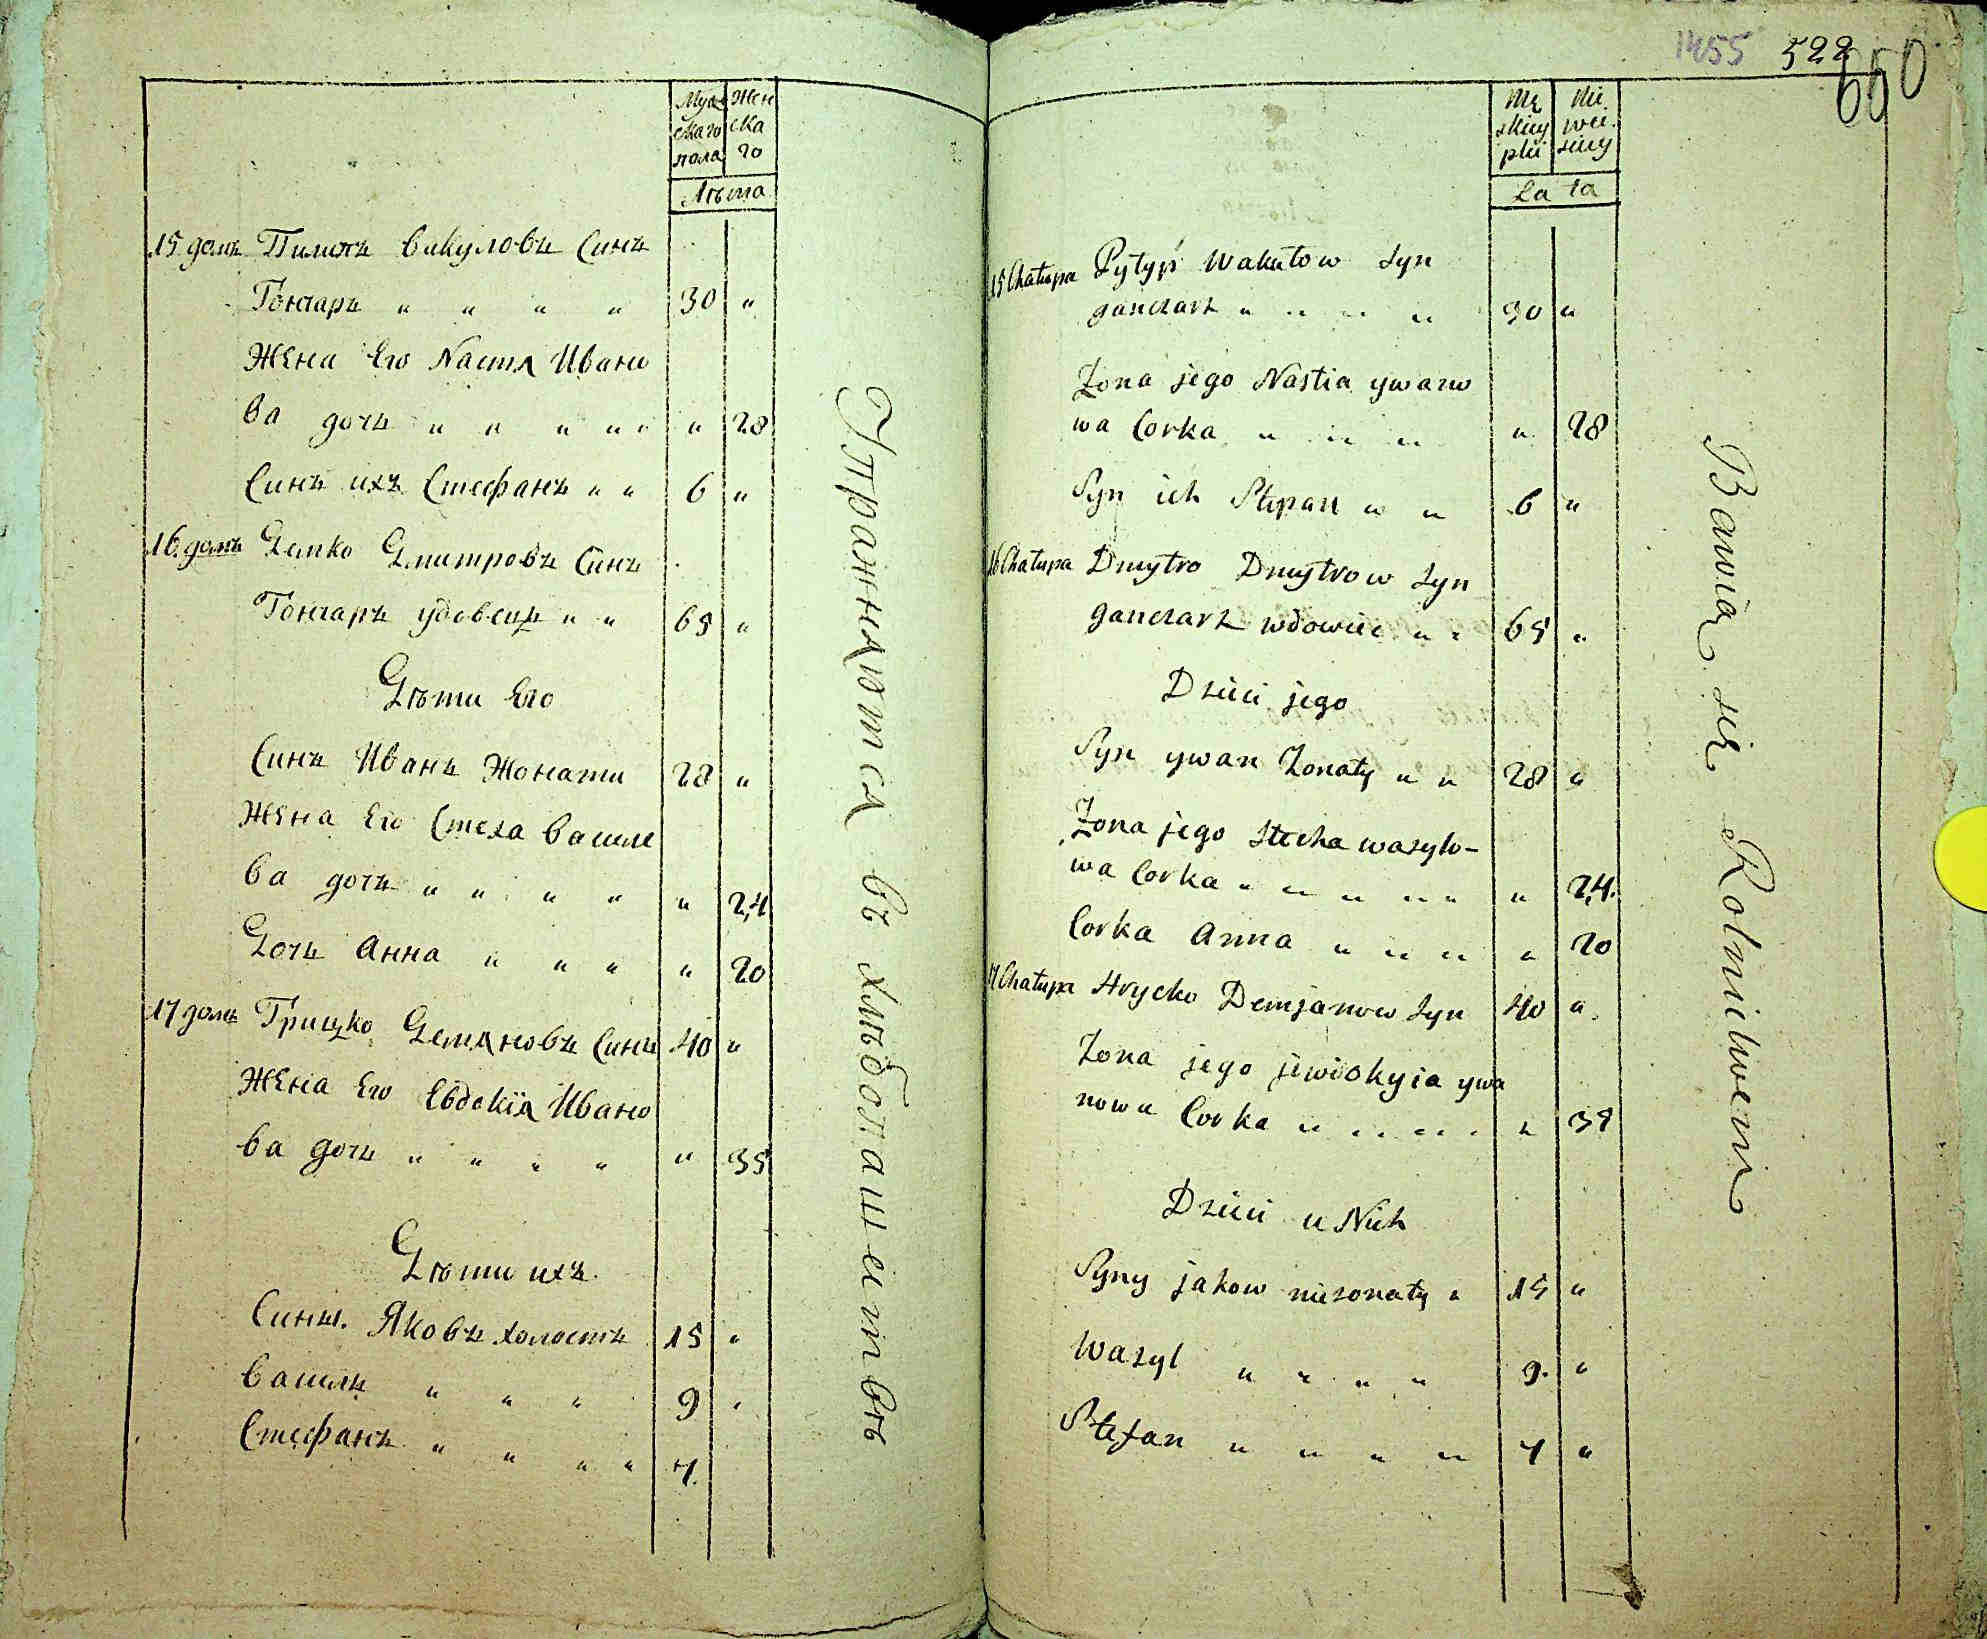 Мужскаго пола | Женскаго
Лѣта
15 домъ Пилипъ Вакуловъ Синъ
Гончаръ " " " " 30 "
Жена Его Настя Ивано
ва дочь " " " " " " 28
Синъ ихъ Стефанъ " " 6 "
16 домъ Демко Дмитровъ Синъ
Гончаръ удовецъ " " 65 "
Дѣти Его
Синъ Иванъ Жонати 28 "
Жена Его Стеха Василе
ва дочь " " " " " 24
Дочь Анна " " " " 20
17 домъ Грицко Демяновъ Синъ 40 "
Жена Его Евдокія Ивано
ва дочь " " " " " 35
Дѣти ихъ
Сины. Яковъ холостъ 15 "
Василь " " " 9 "
Стефанъ " " " " 7.
Упражняются въ хлѣбопашествѣ
1455 522
650
Męskiey płci | Niewiesciey
Lata
15 Chałupa Pyłyp Wakułow Syn
ganczarz " " " " 30 "
Zona jego Nastia ywano
wa Corka " " " " 28
Syn ich Stepan " " 6 "
16 Chałupa Dmytro Dmytrow Syn
ganczarz wdowiec " " 65 "
Dzieci jego
Syn ywan Zonaty " " 28 "
Zona jego Stecha wasylo-
wa Corka " " " " " " 24.
Corka Anna " " " " 20
17 Chałupa Hrycko Demjanow Syn 40 "
Zona jego jewdokyia ywa
nowa Corka " " " " " 35
Dzieci u Nich
Syny jakow niezonaty " 15 "
Wasyl " " " " 9. "
Stefan " " " " 7 "
Bawią się Rolnictwem